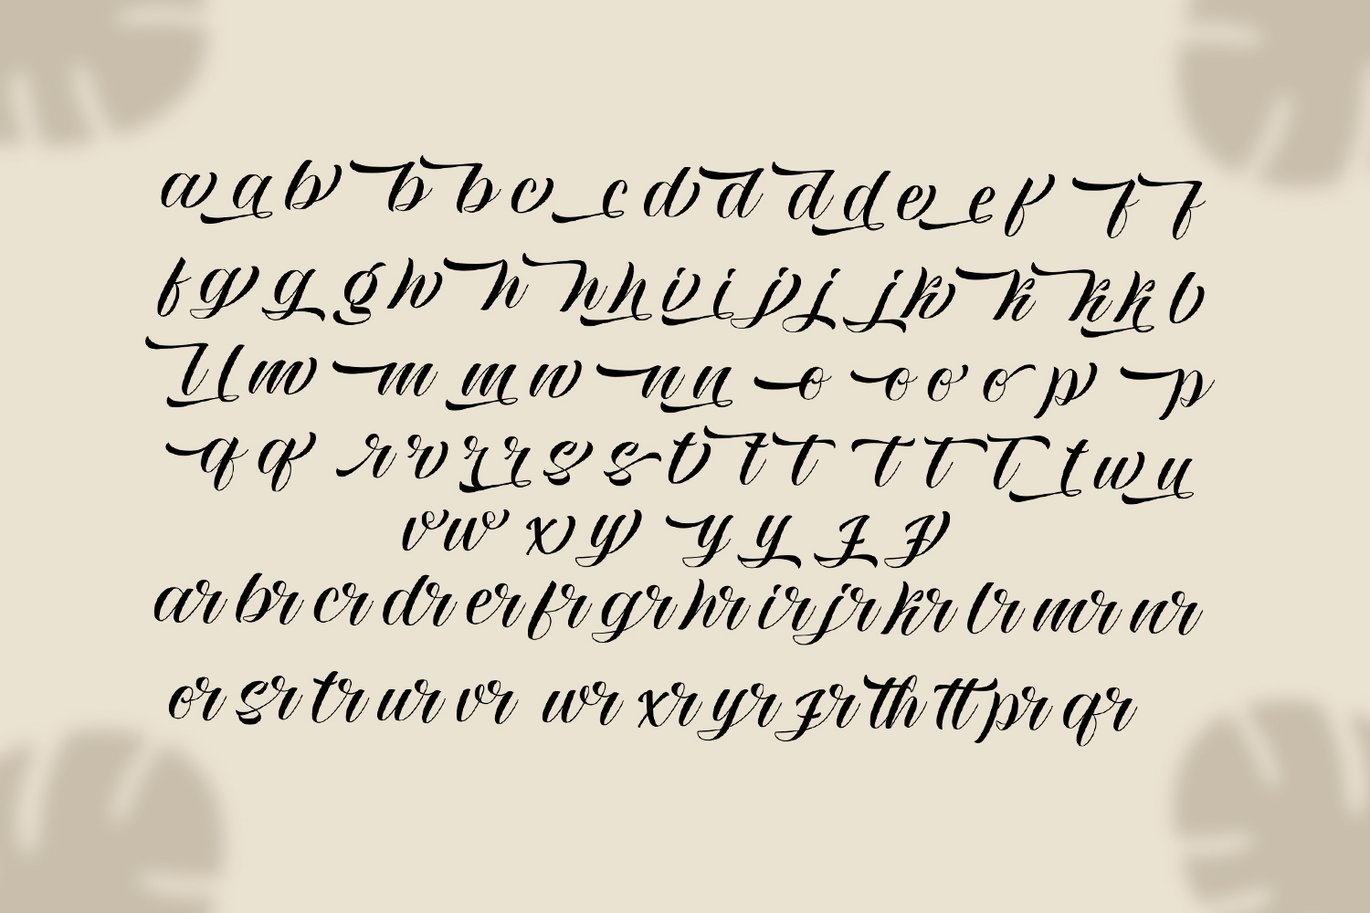 a a b b b c c d d d d e e f f f
f g g g h h h h i i j j j k k k k l
l l m m m n n n o o o o p p
q q r r r r s s t t t t t t t u u
v w x y y y z z
ar br cr dr er fr gr hr ir jr kr lr mr nr
or sr tr ur vr wr xr yr zr th tt pr qr